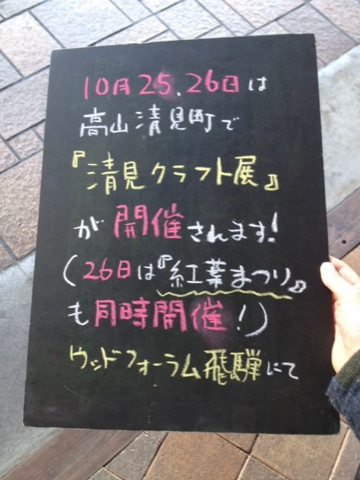 10月25.26日は
高山清見町で
『清見クラフト展』
が開催されます!
(26日は『紅葉まつり』
も同時開催!)
ウッドフォーラム飛騨にて